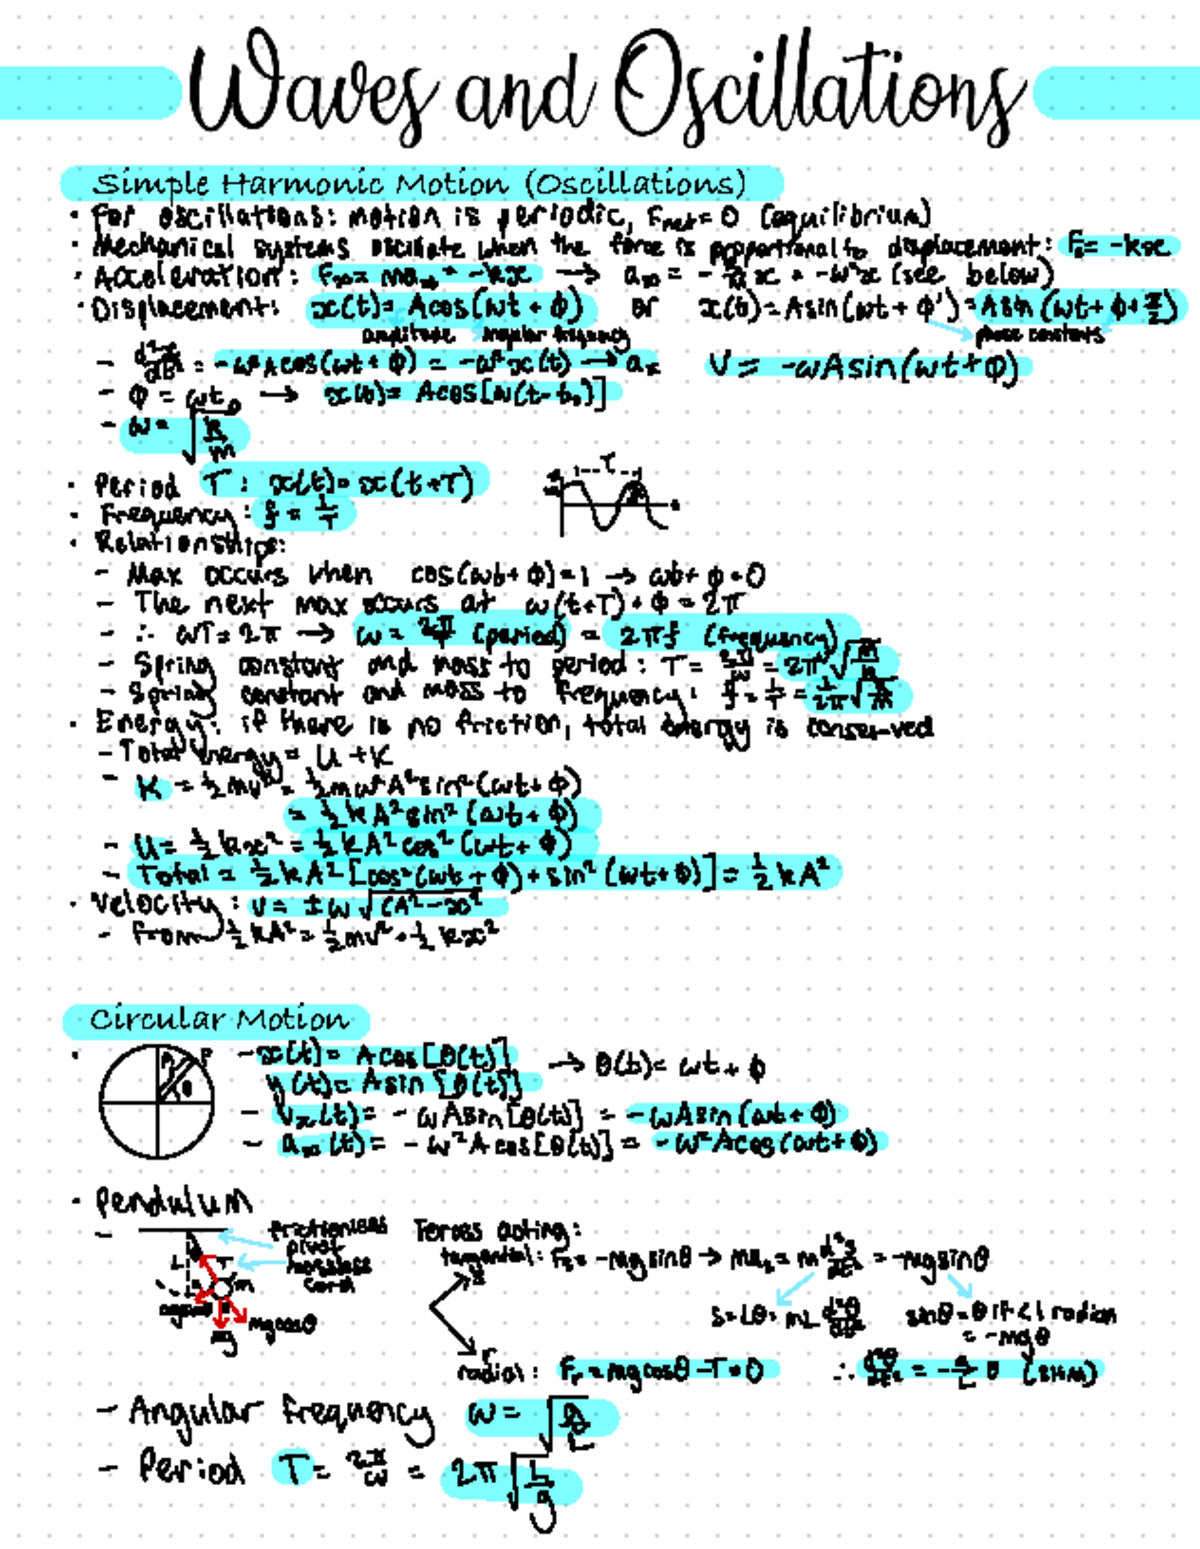 Waves and Oscillations
Simple Harmonic Motion (Oscillations)
• For oscillations: motion is periodic, Fnet = 0 (equilibrium)
• Mechanical systems oscillate when the force is proportional to displacement: Fs = -kx
• Acceleration: Fx = max = -kx → ax = - k/m x = -ω²x (see below)
• Displacement: x(t) = Acos(ωt + ϕ) or x(t) = Asin(ωt + ϕ') = Asin(ωt + ϕ + π/2)
amplitude angular frequency phase constants
- d²x/dt² = -ω²Acos(ωt + ϕ) = -ω²x(t) → ax V = -ωAsin(ωt+ϕ)
- ϕ = ωt₀ → x(t) = Acos[ω(t-t₀)]
- ω = √k/m
• Period T: x(t) = x(t+T)
• Frequency: f = 1/T
T
• Relationships:
- Max occurs when cos(ωt + ϕ) = 1 → ωt + ϕ = 0
- The next max occurs at ω(t+T) + ϕ = 2π
- ∴ ωT = 2π → ω = 2π/T (period) = 2πf (frequency)
- Spring constant and mass to period: T = 2π/ω = 2π√m/k
- Spring constant and mass to frequency: f = 1/T = 1/2π √k/m
• Energy: if there is no friction, total energy is conserved
- Total energy = U + K
- K = ½mv² = ½mω²A²sin²(ωt + ϕ)
= ½kA²sin²(ωt + ϕ)
- U = ½kx² = ½kA²cos²(ωt + ϕ)
- Total = ½kA²[cos²(ωt + ϕ) + sin²(ωt + ϕ)] = ½kA²
• Velocity: v = ±ω√(A²-x²
- from ½kA² = ½mv² + ½kx²
Circular Motion
• A P θ
- x(t) = Acos[θ(t)] → θ(t) = ωt + ϕ
y(t) = Asin[θ(t)]
- vx(t) = -ωAsin[θ(t)] = -ωAsin(ωt + ϕ)
- ax(t) = -ω²Acos[θ(t)] = -ω²Acos(ωt + ϕ)
• Pendulum
- frictionless pivot
massless cord
L T m
mgcosθ
mg
Forces acting:
tangential: Fs = -mgsinθ → mas = m d²s/dt² = -mgsinθ
s = Lθ = mL d²θ/dt² sinθ = θ if < 1 radian
= -mgθ
r
radial: Fr = mgcosθ - T = 0 ∴ d²θ/dt² = - g/L θ (SHM)
- Angular frequency ω = √g/L
- Period T = 2π/ω = 2π√L/g